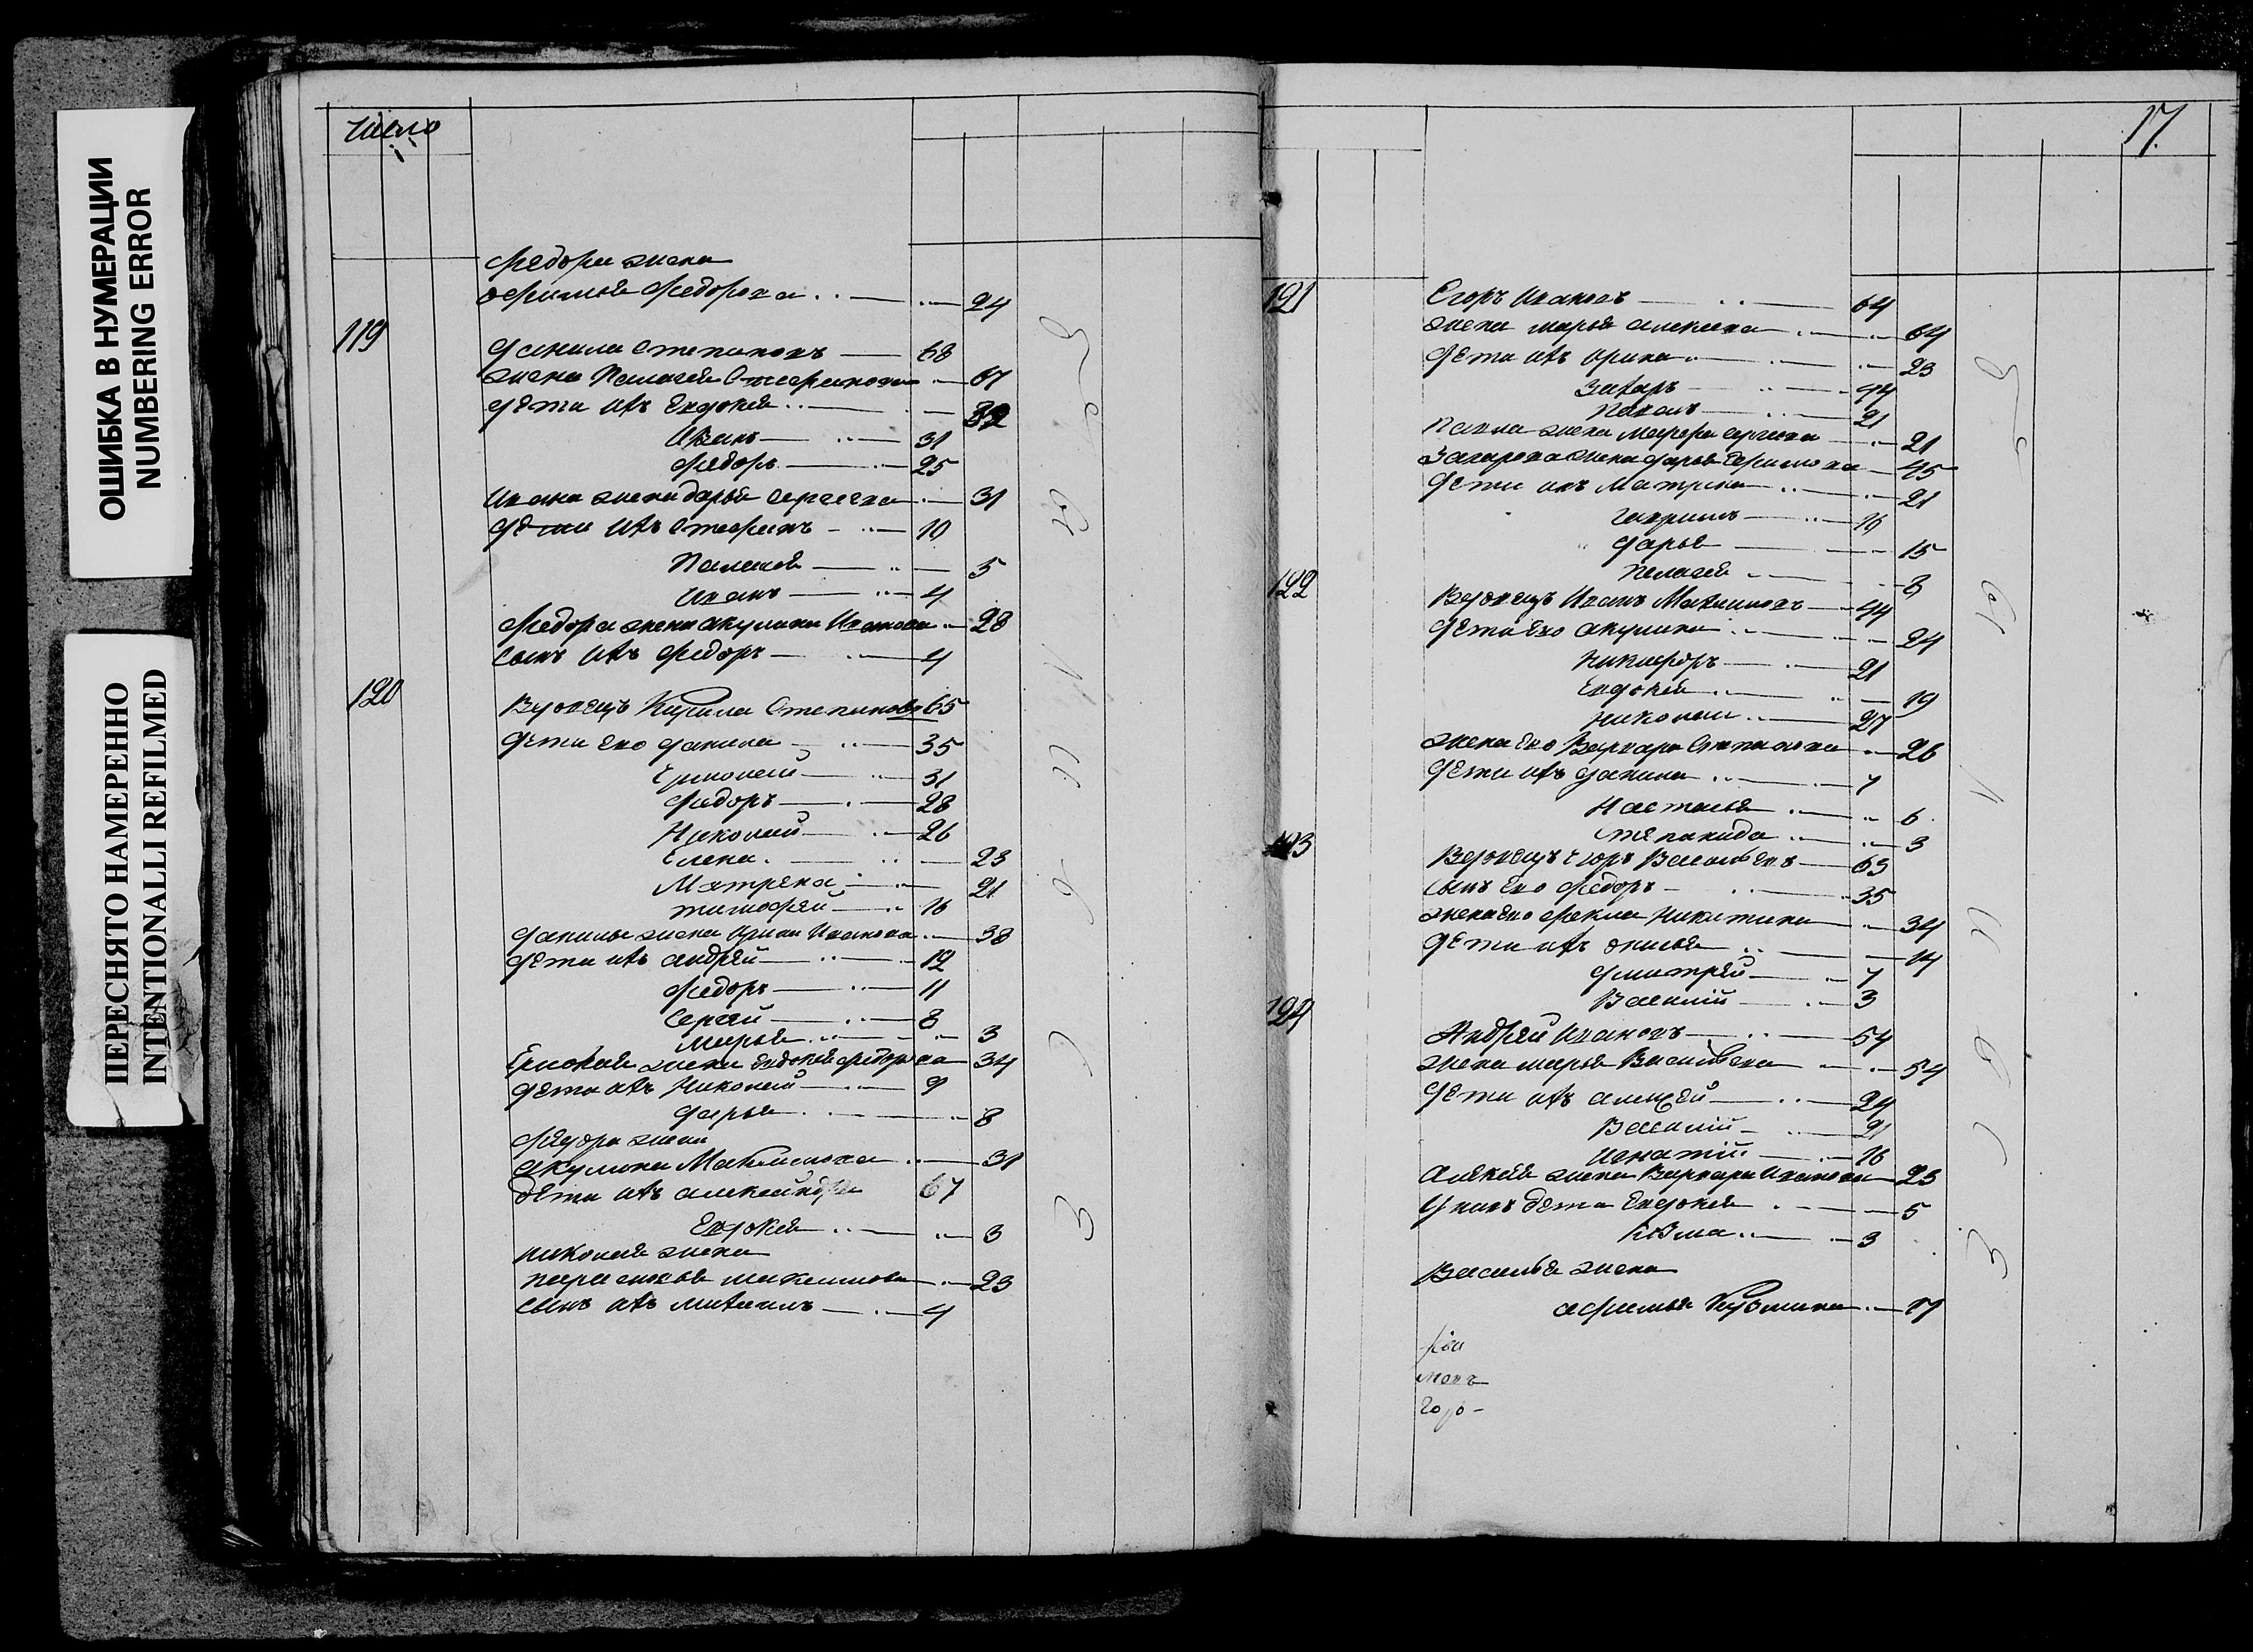 ОШИБКА В НУМЕРАЦИИ
NUMBERING ERROR
ПЕРЕСНЯТО НАМЕРЕННО
INTENTIONALLI REFILMED
число
Федора жена
Офимья Федорова 24
119 Данила Степановъ 68
жена Палагея Стефанова 67
дети ихъ Евдокея 32
Иванъ 31
Федоръ 25
Ивана жена дарья Сергеева 31
дети ихъ Стефанъ 10
Палагея 5
Иванъ 4
Федора жена акулина Иванова 28
сынъ ихъ Федоръ 4
120 Вдовецъ Кирила Степановъ 65
дети Ево данила 35
Ермолай 31
Федоръ 28
Николай 26
Елена 23
Матрена 21
тимофей 16
данилы жена Ирина Иванова 38
дети ихъ андрей 12
Федоръ 11
Сергей 8
Марья 3
Ермолая жена Евдокея Федорова 34
дети ихъ Николай 9
дарья 8
Федора жена
акулина Максимова 31
дети ихъ александра 67
Евдокея 3
николая жена
парасковья максимова 23
сынъ ихъ михаилъ 4
17.
121 Егоръ Ивановъ 64
жена марья алексеева 64
дети ихъ Арина 23
Захаръ 44
Павелъ 21
Павла жена Марфа сергеева 21
Захарова жена дарья Ефимова 45
дети ихъ Матрена 21
Гаврилъ 16
дарья 15
Пелагея 8
122 Вдовецъ Иванъ Максимовъ 44
дети Ево акулина 24
Никифоръ 21
Евдокея 19
николай 27
жена Ево Варвара Степанова 26
дети ихъ данила 7
Настасья 6
степанида 3
123 Вдовецъ Егоръ Васильевъ 63
сынъ Ево Федоръ 35
жена Ево Фекла Никитина 34
дети ихъ 14
дмитрей 7
Василий 3
124 Андрей Ивановъ 54
жена марья Васильева 54
дети ихъ алексей 24
Василий 21
Игнатий 16
Алексея жена Варвара Иванова 23
У нихъ дети Евдокея 5
Козма 3
Василья жена
афимья Кузмина 17